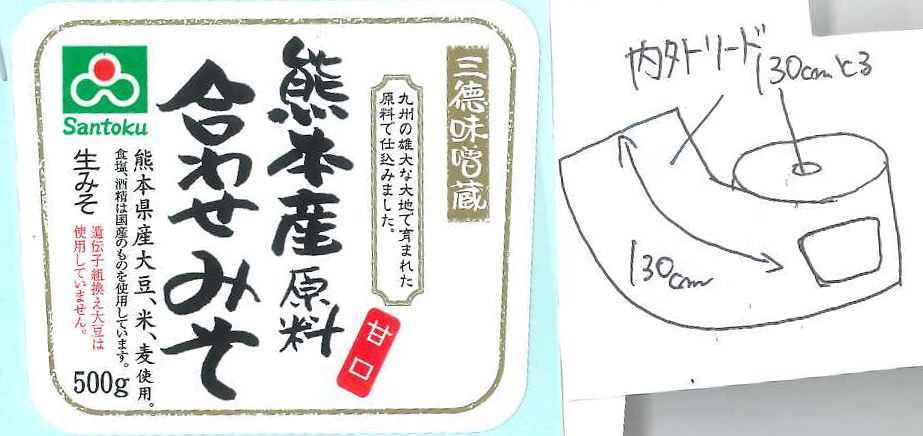 三德味噌蔵
九州の雄大な大地で育まれた
原料で仕込みました。
熊本産原料
甘口
合わせみそ
Santoku
熊本県産大豆、米、麦使用。
食塩、酒精は国産のものを使用しています。
生みそ
遺伝子組換え大豆は
使用していません。
500g
内外トリード
130cmとる
130cm